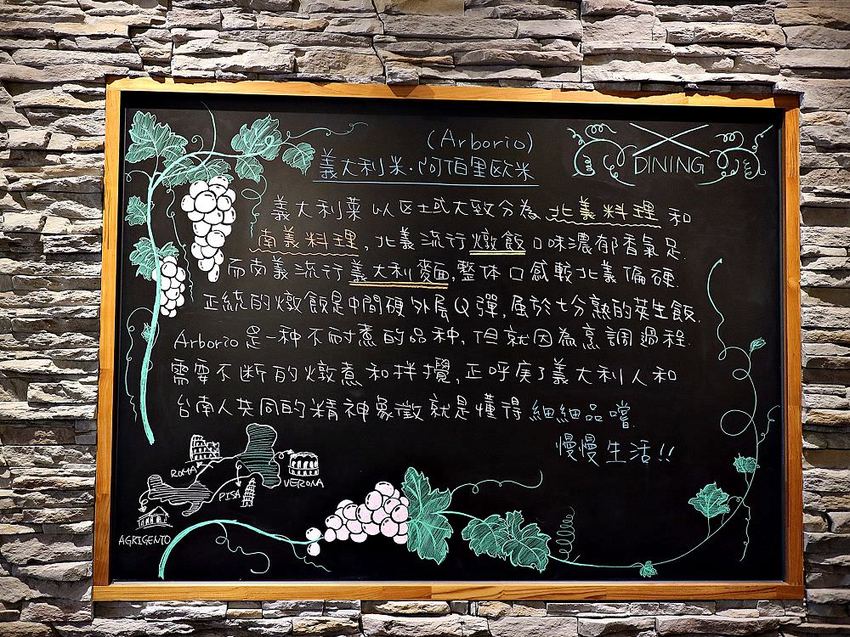 (Arborio)
義大利米·阿伯里欧米
DINING
義大利菜以区土或大致分為北義料理和
南義料理,北義流行燉飯口味濃郁香氣足.
而南義流行義大利麵,整体口感較北義偏硬.
正統的燉飯是中間硬外層Q彈,屬於七分熟的夾生飯.
Arborio是一种不耐煮的品种,但就因為烹調過程
需要不断的燉煮和拌攪,正呼唤了義大利人和
台南人共同的精神象徵就是懂得細細品嚐.
慢慢生活!!
ROMA
VERONA
PISA
AGRIGENTO